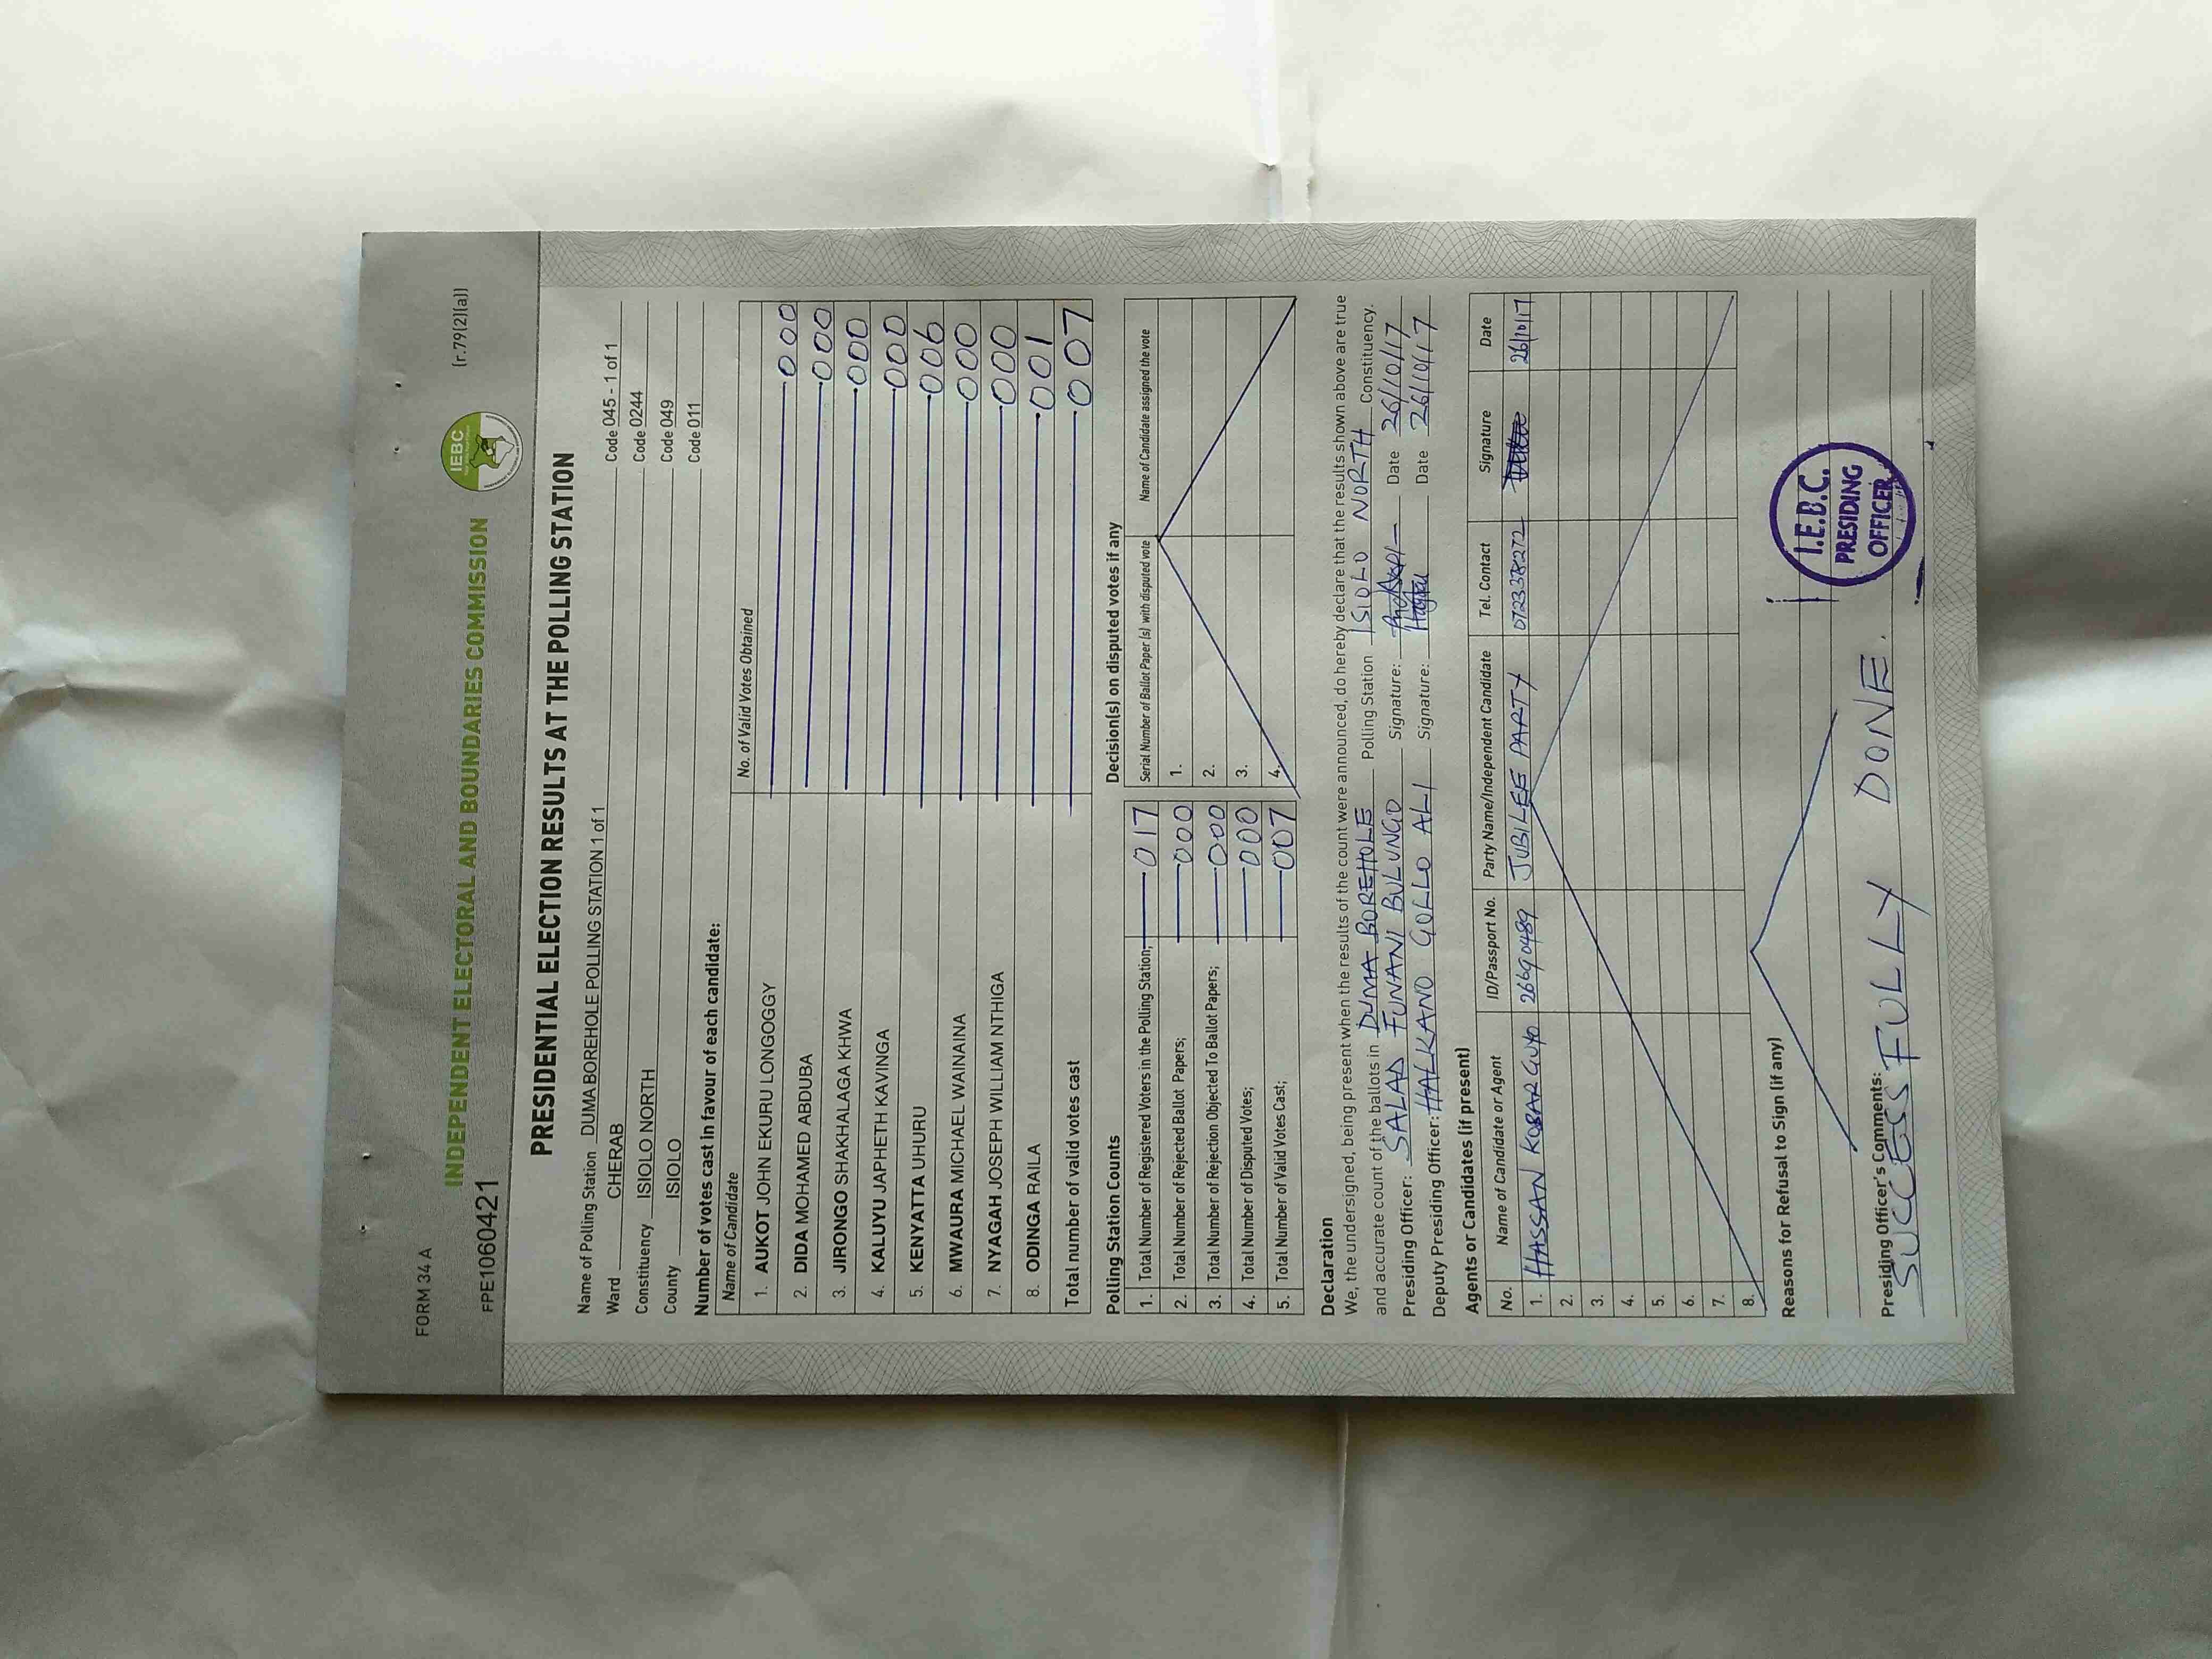 FORM 34 A
(r.79(2)(a))
IEBC
INDEPENDENT ELECTORAL AND BOUNDARIES COMMISSION
FPE1060421
PRESIDENTIAL ELECTION RESULTS AT THE POLLING STATION
Name of Polling Station DUMA BOREHOLE POLLING STATION 1 of 1 Code 045 - 1 of 1
Ward CHERAB Code 0244
Constituency ISIOLO NORTH Code 049
County ISIOLO Code 011
Number of votes cast in favour of each candidate:
Name of Candidate No. of Valid Votes Obtained
1. AUKOT JOHN EKURU LONGOGGY 000
2. DIDA MOHAMED ABDUBA 000
3. JIRONGO SHAKHALAGA KHWA 000
4. KALUYU JAPHETH KAVINGA 000
5. KENYATTA UHURU 006
6. MWAURA MICHAEL WAINAINA 000
7. NYAGAH JOSEPH WILLIAM NTHIGA 000
8. ODINGA RAILA 001
Total number of valid votes cast 007
Polling Station Counts Decision(s) on disputed votes if any
Serial Number of Ballot Paper (s) with disputed vote Name of Candidate assigned the vote
1. Total Number of Registered Voters in the Polling Station; 017
2. Total Number of Rejected Ballot Papers; 000 1.
3. Total Number of Rejection Objected To Ballot Papers; 000 2.
4. Total Number of Disputed Votes; 000 3.
5. Total Number of Valid Votes Cast; 007 4.
Declaration
We, the undersigned, being present when the results of the count were announced, do hereby declare that the results shown above are true
and accurate count of the ballots in DUMA BOREHOLE Polling Station ISIOLO NORTH Constituency.
Presiding Officer: SALAD FUNANI BULUNGO Signature: Date 26/10/17
Deputy Presiding Officer: HALKANO GOLLO ALI Signature: Date 26/10/17
Agents or Candidates (if present)
No. Name of Candidate or Agent ID/Passport No. Party Name/Independent Candidate Tel. Contact Signature Date
1. HASSAN KOBAR GUYO 26690489 JUBILEE PARTY 26/10/17
2.
3.
4.
5.
6.
7.
8.
Reasons for Refusal to Sign (if any)
Presiding Officer's Comments:
SUCCESSFULLY DONE.
I.E.B.C.
PRESIDING
OFFICER